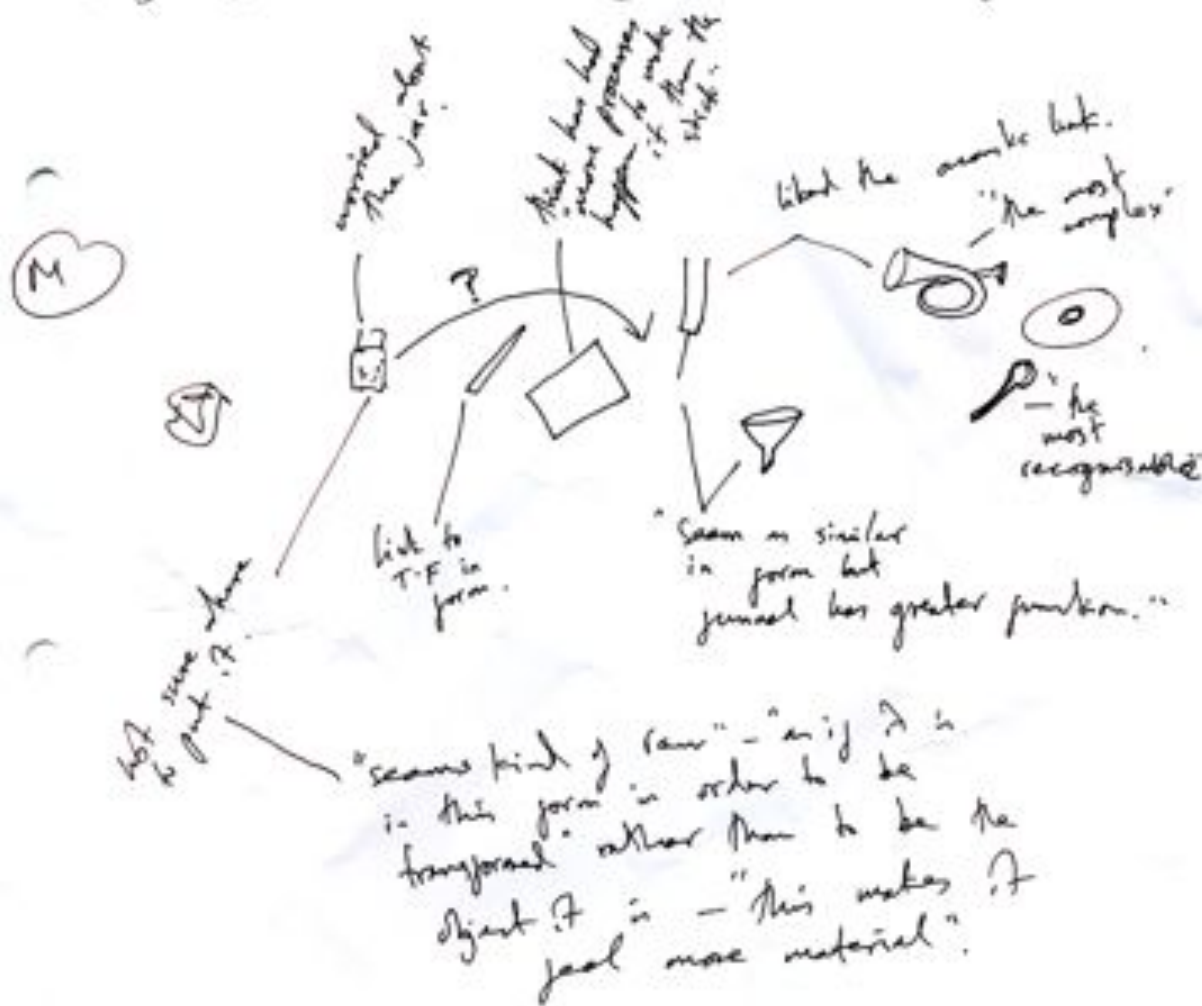 worried about
the jar.
think has had
"more processes
happen to make
it than the
stick".
liked the
"the most
complex"
M
?
"the
most
recognisable"
Link to
T-F in
form.
"Seem as similar
in form but
funnel has greater function."
not sure where
to put it.
"seems kind of raw" - "as if it is
in this form in order to be
transformed" rather than to be the
object it is - "this makes it
feel more material".